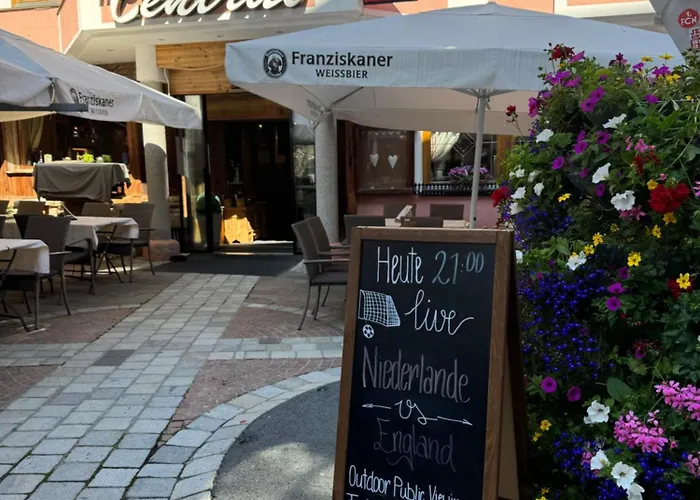 Central
Franziskaner
WEISSBIER
Franziskaner
WEISSBIER
1.
FCN
Heute 21:00
live
Niederlande
vs
England
Outdoor Public